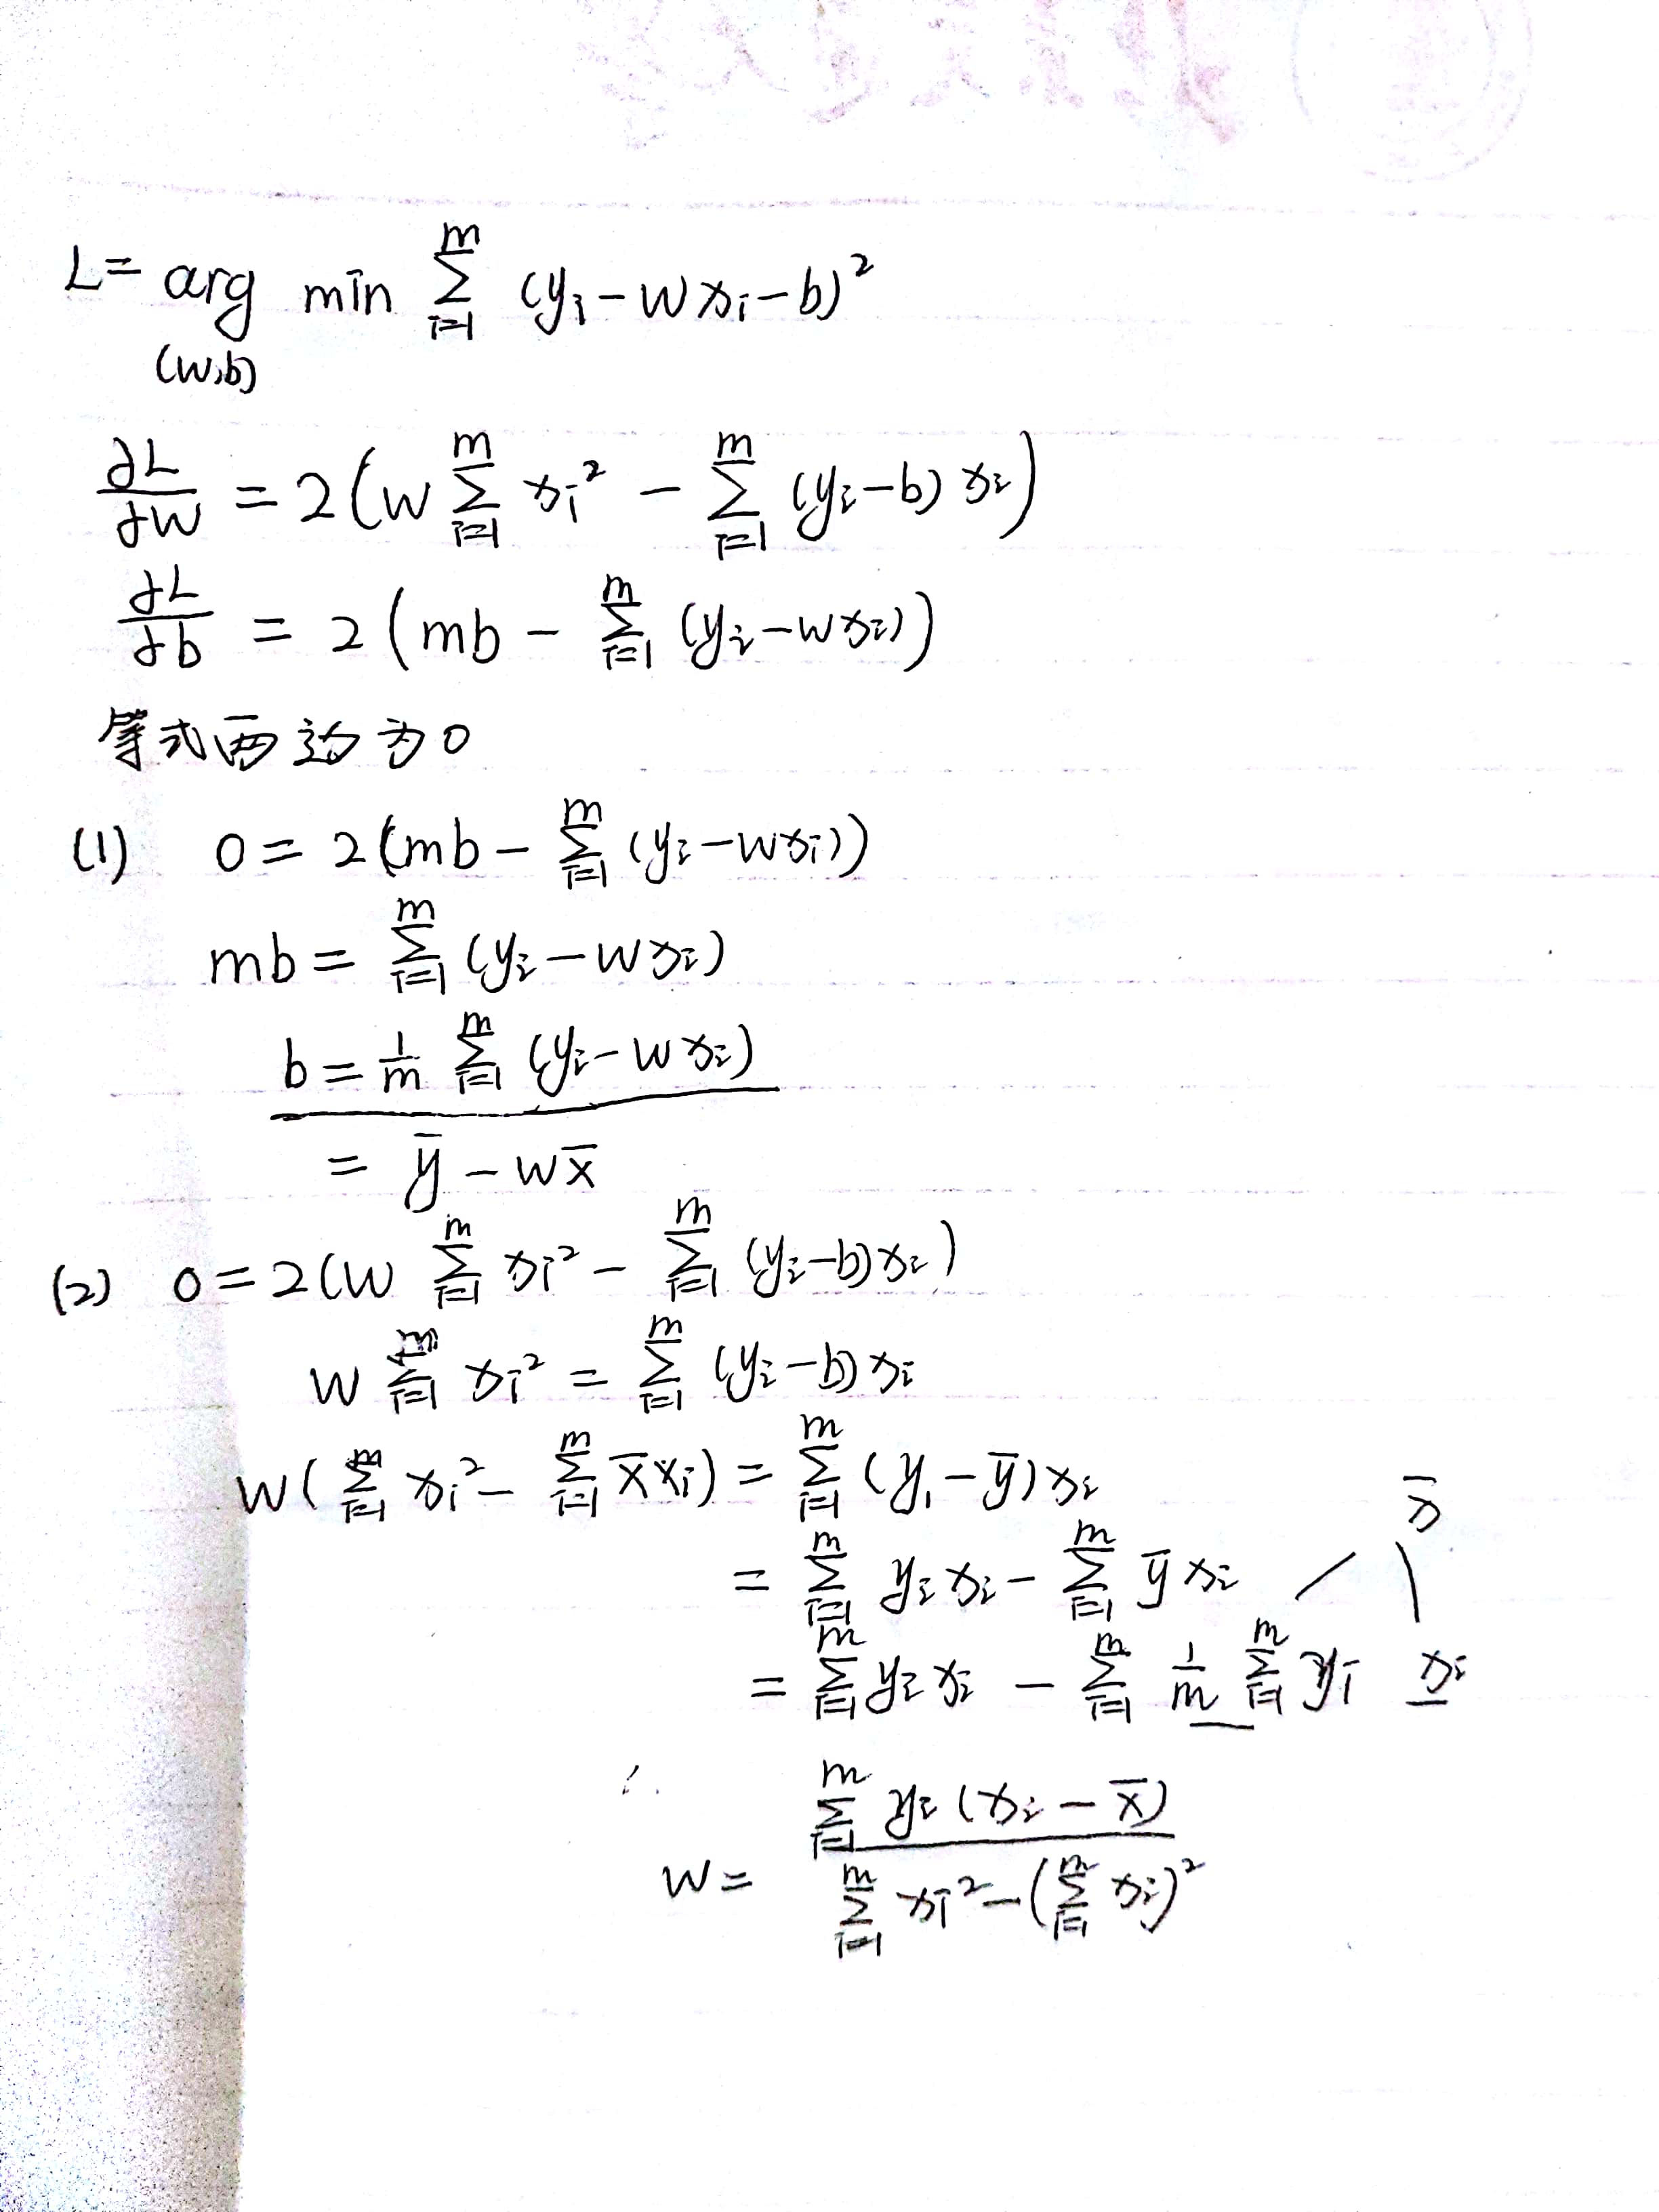 L = arg min Σ_{i=1}^{m} (y_i - w x_i - b)²
(w,b)
∂L/∂w = 2(w Σ_{i=1}^{m} x_i² - Σ_{i=1}^{m} (y_i - b) x_i)
∂L/∂b = 2(mb - Σ_{i=1}^{m} (y_i - w x_i))
等式两边为0
(1) 0 = 2(mb - Σ_{i=1}^{m} (y_i - w x_i))
mb = Σ_{i=1}^{m} (y_i - w x_i)
b = 1/m Σ_{i=1}^{m} (y_i - w x_i)
= ȳ - w x̄
(2) 0 = 2(w Σ_{i=1}^{m} x_i² - Σ_{i=1}^{m} (y_i - b) x_i)
w Σ_{i=1}^{m} x_i² = Σ_{i=1}^{m} (y_i - b) x_i
w(Σ_{i=1}^{m} x_i² - Σ_{i=1}^{m} x̄ x_i) = Σ_{i=1}^{m} (y_i - ȳ) x_i
x̄
= Σ_{i=1}^{m} y_i x_i - Σ_{i=1}^{m} ȳ x_i
= Σ_{i=1}^{m} y_i x_i - Σ_{i=1}^{m} 1/m Σ_{i=1}^{m} y_i x_i
∴
w = Σ_{i=1}^{m} y_i (x_i - x̄) / (Σ_{i=1}^{m} x_i² - (Σ_{i=1}^{m} x_i)²)